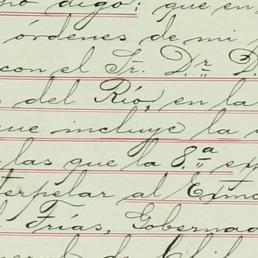 no digo: que en
órdenes de mi
con el Sr. Dr. D.
del Río, en la
que incluye la
las que la 8.a
terpelar al Exmo
Frías, Gobernad